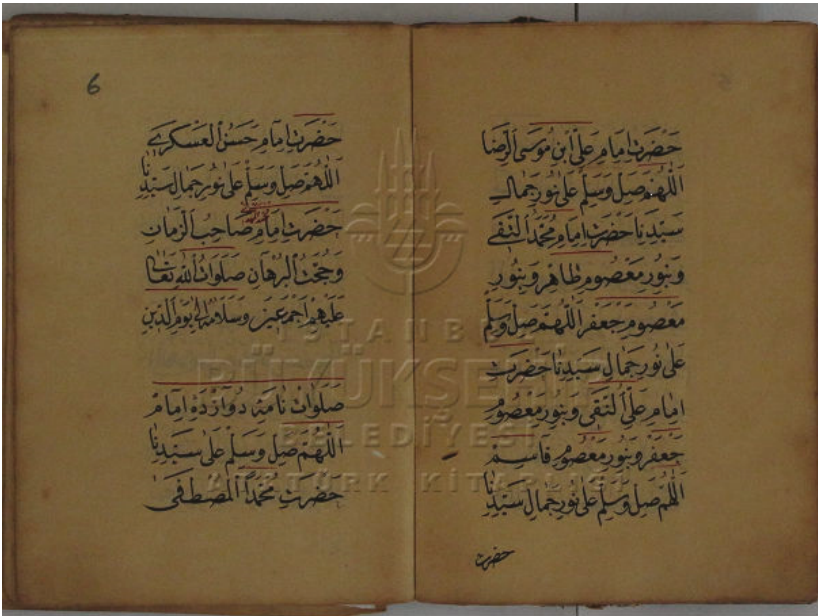 حَضْرَتِ اِمَامِ عَلِّى اِبْنِ مُوسَى الرِّضَا
اَللّٰهُمَّ صَلِّ وَسَلِّمْ عَلٰى نُورِ جَمَالِ
سَيِّدِنَا حَضْرَتِ اِمَامِ مُحَمَّدُ التَّقِى
وَبِنُورِ مَعْصُومِ طَاهِرْ وَبِنُورِ
مَعْصُومِ جَعْفَرْ اَللّٰهُمَّ صَلِّ وَسَلِّمْ
عَلٰى نُورِ جَمَالِ سَيِّدِنَا حَضْرَتِ
اِمَامِ عَلِّى النَّقِى وَبِنُورِ مَعْصُومِ
جَعْفَرْ وَبِنُورِ مَعْصُومِ قَاسِمْ
اَللّٰهُمَّ صَلِّ وَسَلِّمْ عَلٰى نُورِ جَمَالِ سَيِّدِنَا
حضرت
6
حَضْرَتِ اِمَامِ حَسَنُ الْعَسْكَرِى
اَللّٰهُمَّ صَلِّ وَسَلِّمْ عَلٰى نُورِ جَمَالِ سَيِّدِنَا
حَضْرَتِ اِمَامِ صَاحِبُ الزَّمَانِ
وَحُجَّتُ الْبُرْهَانِ صَلَوَاتُ اللّٰهِ تَعَالٰى
عَلَيْهِمْ اَجْمَعِينَ وَسَلَامُهُ اِلٰى يَوْمِ الدِّينِ
صَلَوَاتْ نَامَهٔ دُوَازْدَهْ اِمَامْ
اَللّٰهُمَّ صَلِّ وَسَلِّمْ عَلٰى سَيِّدِنَا
حَضْرَتِ مُحَمَّدْ اَلْمُصْطَفٰى
İSTANBUL
BÜYÜKŞEHİR
BELEDİYESİ
ATATÜRK KİTAPLIĞI